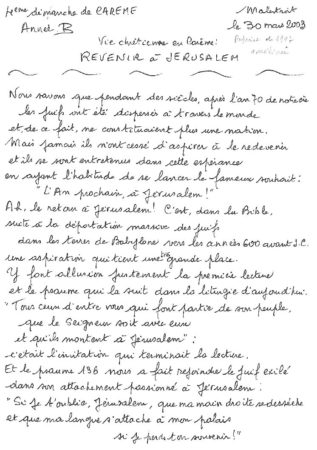 4ème dimanche de CARÊME
Malestroit
Année B
le 30 mars 2003
Reprise de 1997
améliorée
Vie chrétienne en Carême:
REVENIR à JERUSALEM
Nous savons que pendant des siècles, après l'an 70 de notre ère
les Juifs ont été dispersés à travers le monde
et, de ce fait, ne constituaient plus une nation.
Mais jamais ils n'ont cessé d'aspirer à le redevenir
et ils se sont entretenus dans cette espérance
en ayant l'habitude de se lancer le fameux souhait:
"L'An prochain, à Jérusalem!"
Ah, le retour à Jérusalem! C'est, dans la Bible,
suite à la déportation massive des juifs
dans les terres de Babylone vers les années 600 avant J.C.
une aspiration qui tient une très grande place.
Y font allusion justement la première lecture
et le psaume qui la suit dans la liturgie d'aujourd'hui.
"Tous ceux d'entre vous qui font partie de son peuple,
que le Seigneur soit avec eux
et qu'ils montent à Jérusalem":
c'était l'invitation qui terminait la lecture.
Et le psaume 136 nous a fait rejoindre le Juif exilé
dans son attachement passionné à Jérusalem:
"Si je t'oublie, Jérusalem, que ma main droite se dessèche
et que ma langue s'attache à mon palais
si je perds ton souvenir!"